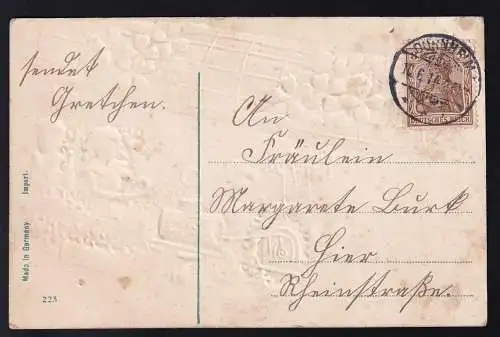 sendet
Gretchen.
An
Fräulein
Margarete Burk
Hier
Rheinstraße.
DEUTSCHES REICH
Made in Germany Import.
223